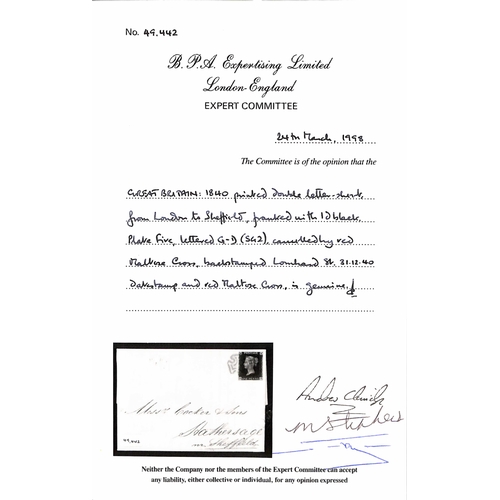 No. 49,442
B.P.A. Expertising Limited
London-England
EXPERT COMMITTEE
24th March, 1998
The Committee is of the opinion that the
GREAT BRITAIN: 1840 printed double letter-sheet
from London to Sheffield, franked with 1d black
Plate Five, lettered G-D (SG2), cancelled by red
Maltese Cross, backstamped Lombard St. 31.12.40
Datestamp and red Maltese Cross, is genuine.
Messrs Cocker & Sons
Hathersage
nr Sheffield
49,442
Neither the Company nor the members of the Expert Committee can accept
any liability, either collective or individual, for any opinion expressed